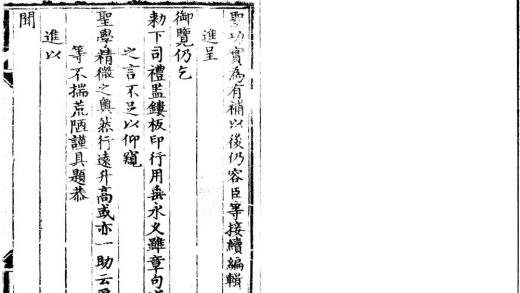 聖功實為有補以後仍容臣等接續編輯
進呈
御覽仍乞
勅下司禮監鏤板印行用垂永久雖章句
之言不足以仰窺
聖學精微之奧然行遠升高或亦一助云
等不揣荒陋謹具題恭
進以
聞